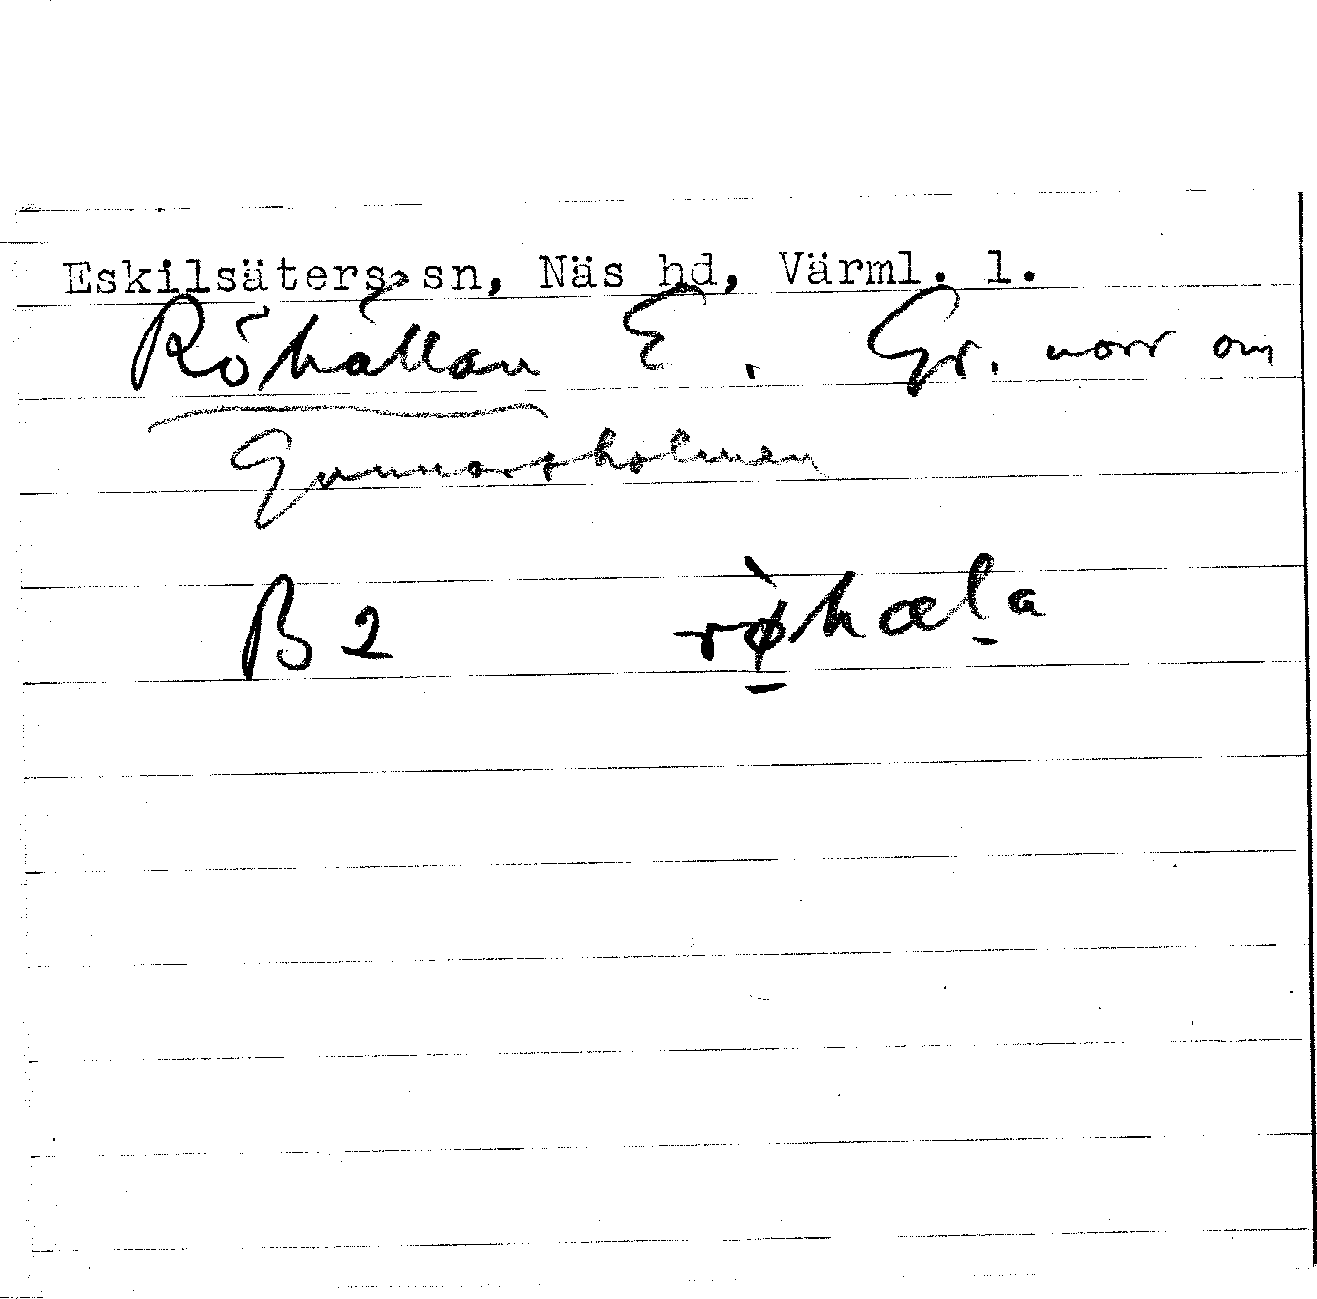 Eskilsäters sn, Näs hd, Värml. l.
Röhällan E. Gr. norr om
Gunnarsholmen
B 2 rø̀hæla